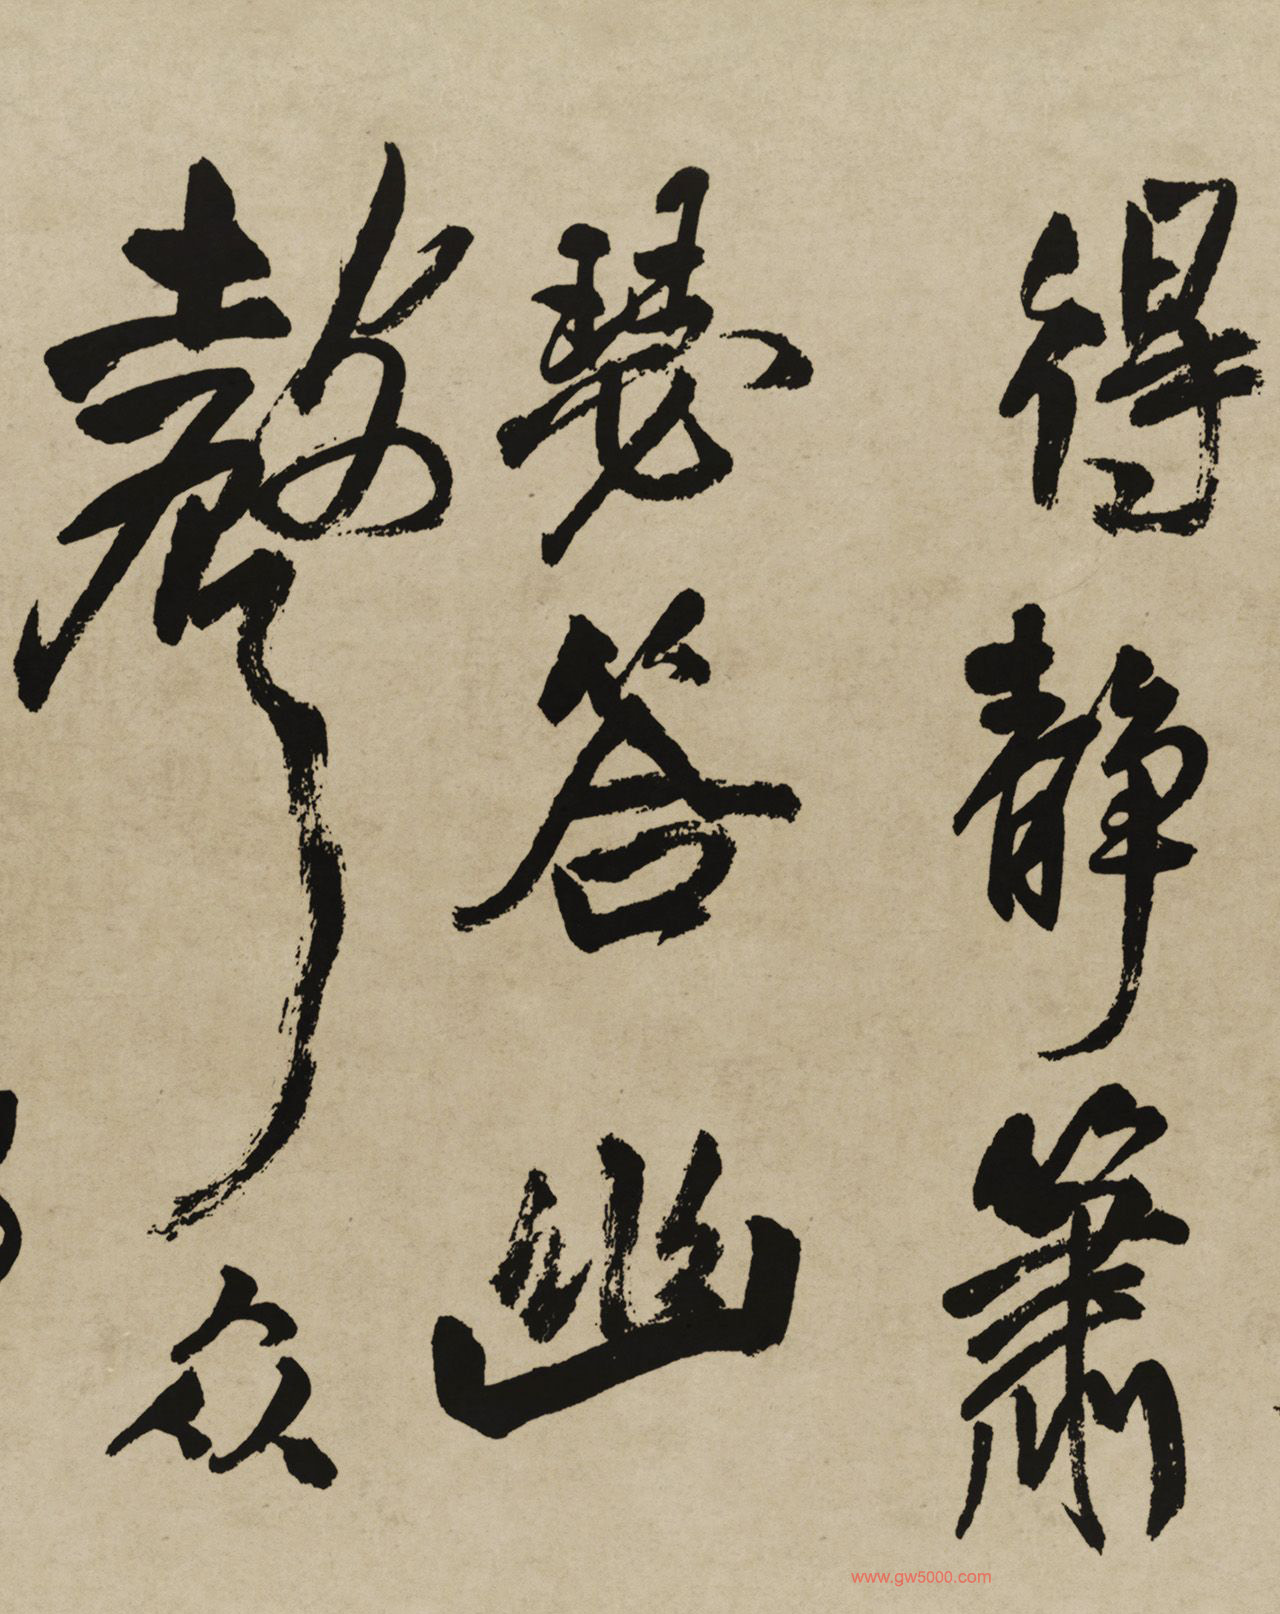 得静簫
瑟答幽
聲众
www.gw5000.com